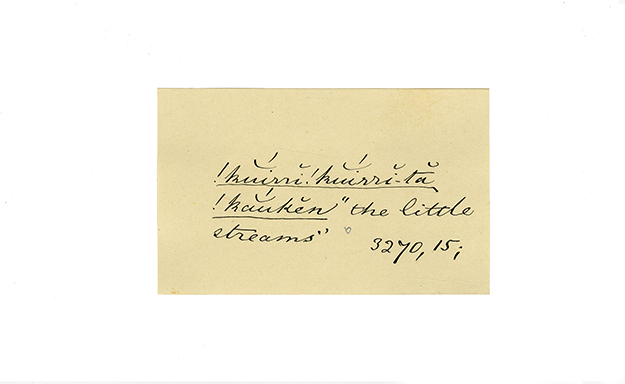 !kŭírrĭ!kŭírrĭ-tă
!kăúkĕn "the little
streams"
3270, 15;